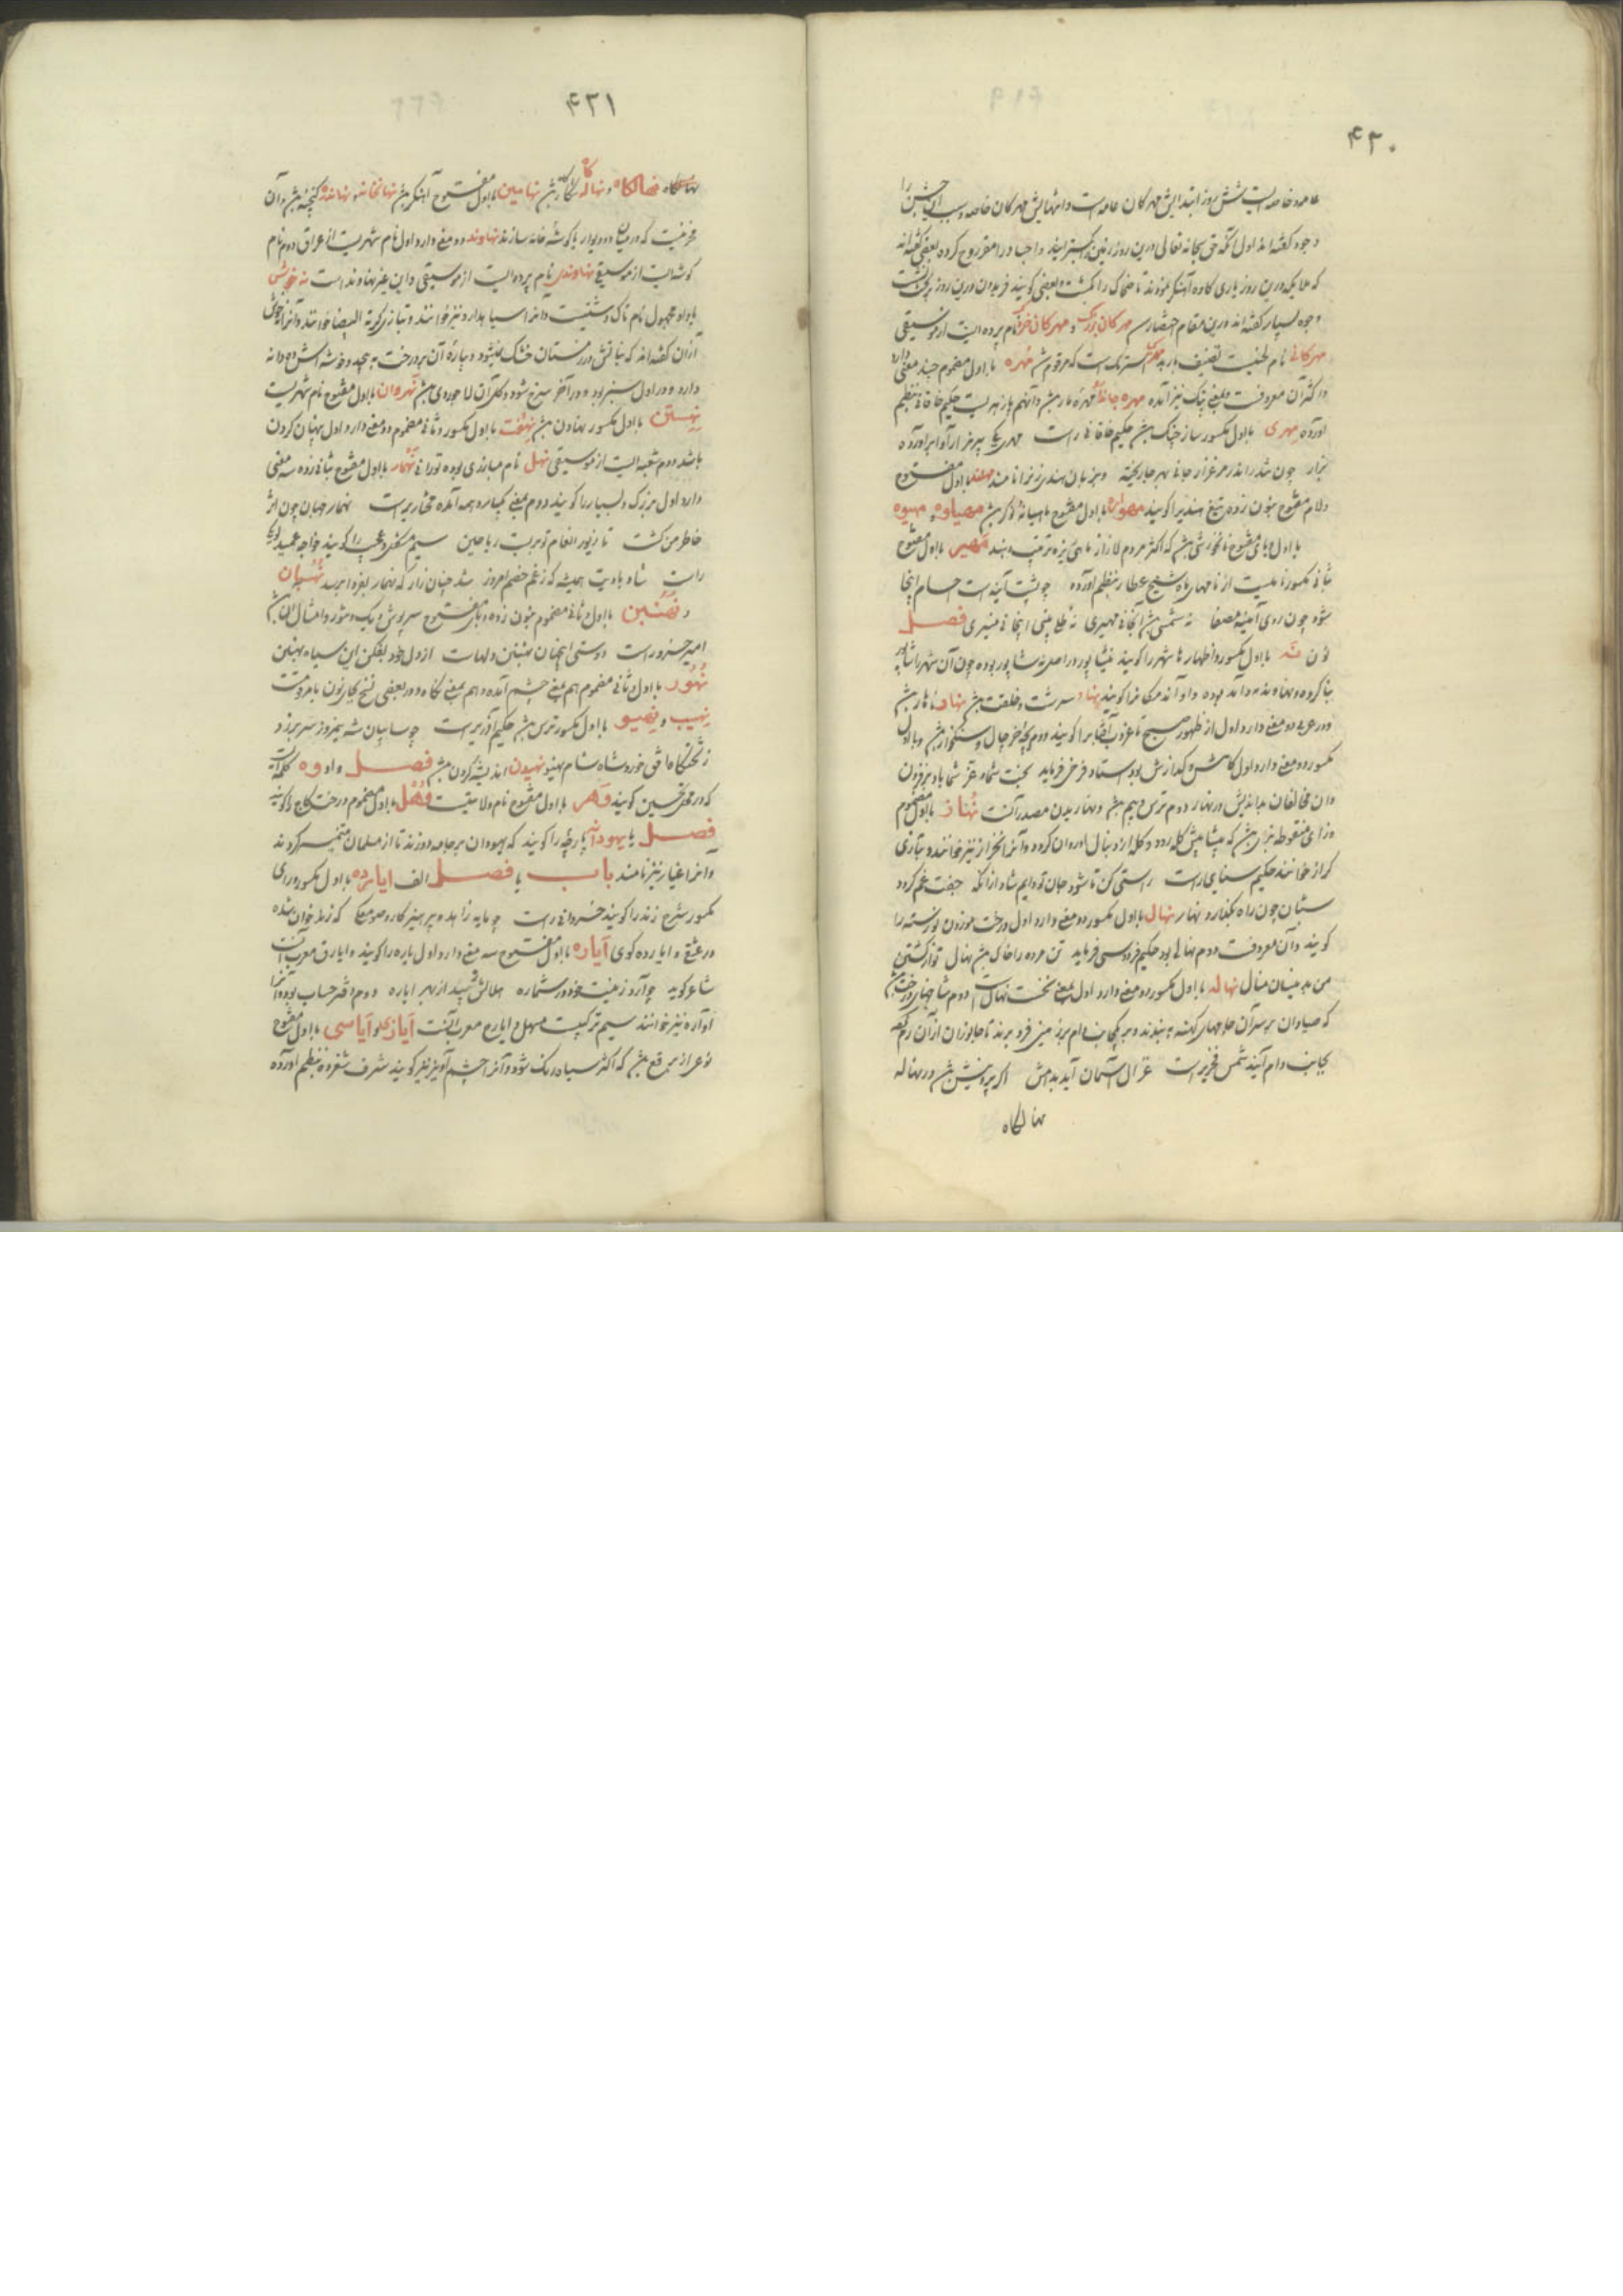 ۴۲۰
عامه و خاصه است شش روز ابتدایش مهرکان عامه است و انتهایش مهرکان خاصه و سبب این جشن را
وجوه گفته اند اول آنکه حق سبحانه تعالی درین روز زمین را بکسترانید و اجساد را مقر روح کرد و بعضی گفته اند
که ملایکه درین روز یاری کاوه آهنکر نمودند تا ضحاک را بکشت و بعضی کویند فریدون درین روز بر تخت نشست
وجوه بسیار گفته اند درین مقام اختصار مهرکان بزرگ و مهرکان خرد نام پرده ایست از موسیقی
مهرکانی نام لحنیست تصنیف باربد که مرقوم شد مهره با اول مضموم چند معنی دارد
و آن معروفست و بمعنی پتک نیز آمده مهره جاندار مهره مار بشد و آنهم پازهریست حکیم خاقانی بنظم
آورده مهری با اول مکسور ساز چنک بشد حکیم خاقانی راست مهری یکی پیر نزار آوا برآورده
بزار چون تندر اندر مرغزار جانی بهر جا ریخته و بزبان هندی زنرا نامند مهند با اول مفتوح
و لام مفتوح بنون زده تیغ هندیرا کویند با اول مفتوح مهیاوه و مهیوه
با اول و یای مفتوح نانخورشی بشد که اکثر مردم لار از ماهی ریزه ترتیب دهند مهیر با اول مفتوح
بثانی مکسور نامیست از نامهای ماه شیخ عطار بنظم آورده چو پشت آینه است اینجا
شود چون روی آیینه مصفا نه شمسی آنجا نی مهیری نه طلح بینی اینجا نی منیری فصل
نون نه با اول مکسور و اظهار ها شهر را کویند نیشاپور در اصل نه شاپور بوده چون آن شهر را شاپور
بنا کرده و نهاوند نه و آوند بوده و آوند مکانرا کویند نهاد سرشت و خلقت بشد نهار ناهار بشد
و در عربی دو معنی دارد اول از ظهور صبح تا غروب آفتابرا کویند دوم بچه خرچال و سنکخوار بشد و با اول
مکسور دو معنی دارد اول کاهش و کدازش بود استاد فرخی فرماید بخت شما و عز شما باد بر فزون
وان مخالفان بداندیش در نهار دوم ترس و بیم بشد و نهاریدن مصدر آنست نهاز با اول مضموم
و زای منقوطه بزی بشد که پیشاپیش کله رود و کله از دنبال او روان کردد و آنرا نخراز نیز خوانند و بتازی
کراز خوانند حکیم سنایی راست راستی کن تا شود جان تو دایم شاد از آنکه جفت غم کردد
ستان چون راه بکذارد نهار نهال با اول مکسور دو معنی دارد اول درخت موزون نورسته را
کویند و آن معروفست دوم نهالی بود حکیم فردوسی فرماید تن مرده را خاک بشد نهال تو از کشتن
من بدینسان منال نهاله با اول مکسور دو معنی دارد اول بمعنی نخست نهالست دوم شاخهای درخت بشد
که صیادان بر سر آن جامهای کهنه به بندند و بر یکجانب دام بر زمین فرو برند تا جانوران از آن رم کنند
بجانب دام آیند شمس فخری راست غزال آسمان آید بدامش اگر پروینش بشد در نهاله
نهالکاه
۴۲۱
نهالکاه و نهاله کاه بشد نهامین با اول مفتوح آهنکر بشد نهانخانه و نهاندره کنجینه بشد و آن
مخزنیست که در میان دو دیوار یا کوشه خانه سازند نهاوند دو معنی دارد اول نام شهریست از عراق دوم نام
کوشه ایست از موسیقی نهاوندی نام پرده ایست از موسیقی و این غیر نهاوند است نه خوش
با واو مجهول نام تاک دشتیست و آنرا سیاه دارو نیز خوانند و بتازی کرمة البیضا خوانند و آنرا
از آن گفته اند که نباتش در زمستان خشک نمیشود و بیاره آن بر درخت به پیچد و خوشه اش ده دانه
دارد و در اول سبز بود و در آخر سرخ شود و کل آن لاجوردی بشد نهروان با اول مفتوح نام شهریست
نهستن با اول مکسور نهادن بشد نهفت با اول مکسور و ثانی مضموم دو معنی دارد اول پنهان کردن
باشد دوم شعبه ایست از موسیقی نهل نام مبارزی بوده تورانی نهمار با اول مفتوح بثانی زده سه معنی
دارد اول بزرک و بسیار را کویند دوم بمعنی یکباره همه آمده مختاری راست نهمار جهان چون اثر
خاطر من کشت تا زیور انعام تو بر بست ریاحین سیم شکفت و عجب را کویند خواجه عمید لوبکی
راست شاد بادیت همیشه که ز غم خصم امروز شد چنان زار که نهمار بفردا برسد نهنبان
و نهنبین با اول و ثانی مضموم بنون زده و بای مفتوح سرپوش دیک و تنور و امثال آن باشد
امیر خسرو راست دوستی نهنبن دلهاست از دل خود بفکن این سیاه نهنبن
نهور با اول و ثانی مضموم هم بمعنی چشم آمده و هم بمعنی نکاه و در بعضی نسخ بجای نون یا مرقومست
نهیب و نهیو با اول مکسور ترس بشد حکیم آذری راست چو ساییان شه نیمروز سر بر زد
ز تختکاه افق خور و شاه شام نهیو نهیدن اندیشه کردن بشد فصل واو وه کلمه ایست
که در محل تحسین کویند وهر با اول مفتوح نام ولایتیست وهل با اول مضموم درخت کاج را کویند
فصل یا یهودانه پارچه را کویند که یهودان بر جامه دوزند تا از مسلمان متمیز کردند
و آنرا غیار نیز نامند باب یا فصل الف ایارده با اول مکسور و رای
مکسور شرح زند را کویند خسروانی راست چو مایه زاهد و پرهیزکار و صومعکی که زند خوان شده
در عشق و ایارده کوی ایاره با اول مفتوح سه معنی دارد اول یاره را کویند و ایارق معرب آنست
شاعر کوید چو آرد زینت خود در شماره هلالش شید از بهر ایاره دوم دفتر حساب بود و آنرا
اواره نیز خوانند سیم ترکیبیست مسهل و ایارج معرب آنست ایازی و ایاسی با اول مفتوح
نوعی از برقع بشد که اکثر سیاه رنک شود و آنرا چشم آویز نیز کویند شرف شفروه بنظم آورده